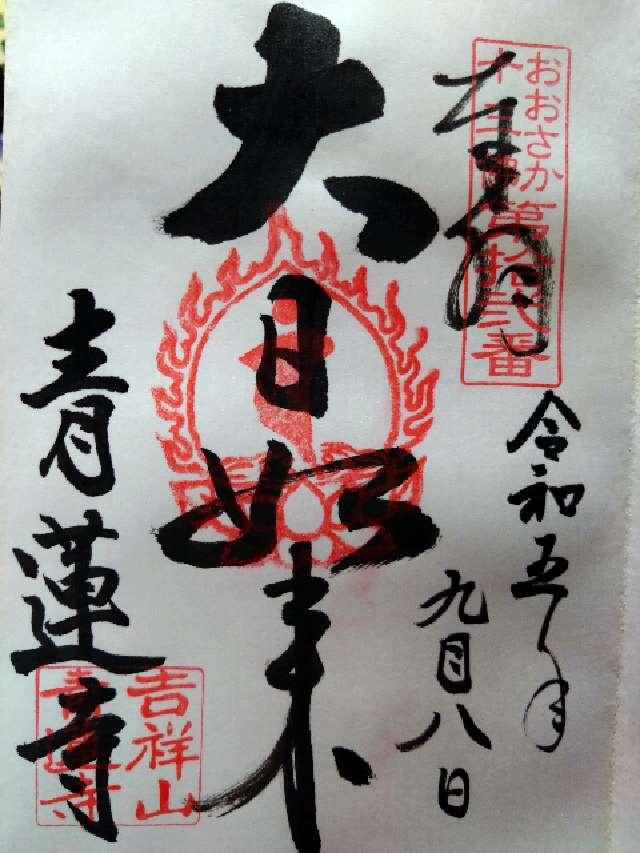 奉拝
おおさか
十三佛第拾弐番
令和五年
九月八日
大日如来
青蓮寺
吉祥山
青蓮寺